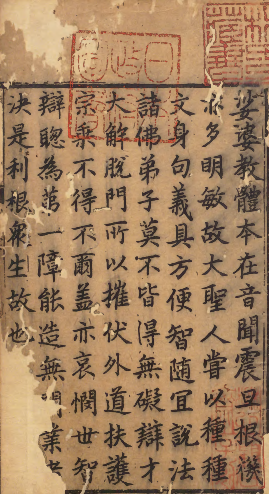 娑婆教體本在音聞震旦根機
多明敏故大聖人嘗以種種
文身句義具方便智隨宜說法
諸佛弟子莫不皆得無礙辯才
大解脫門所以摧伏外道扶護
宗乘不得不爾蓋亦哀憫世智
辯聰為第一障能造無間業
決是利根衆生故也